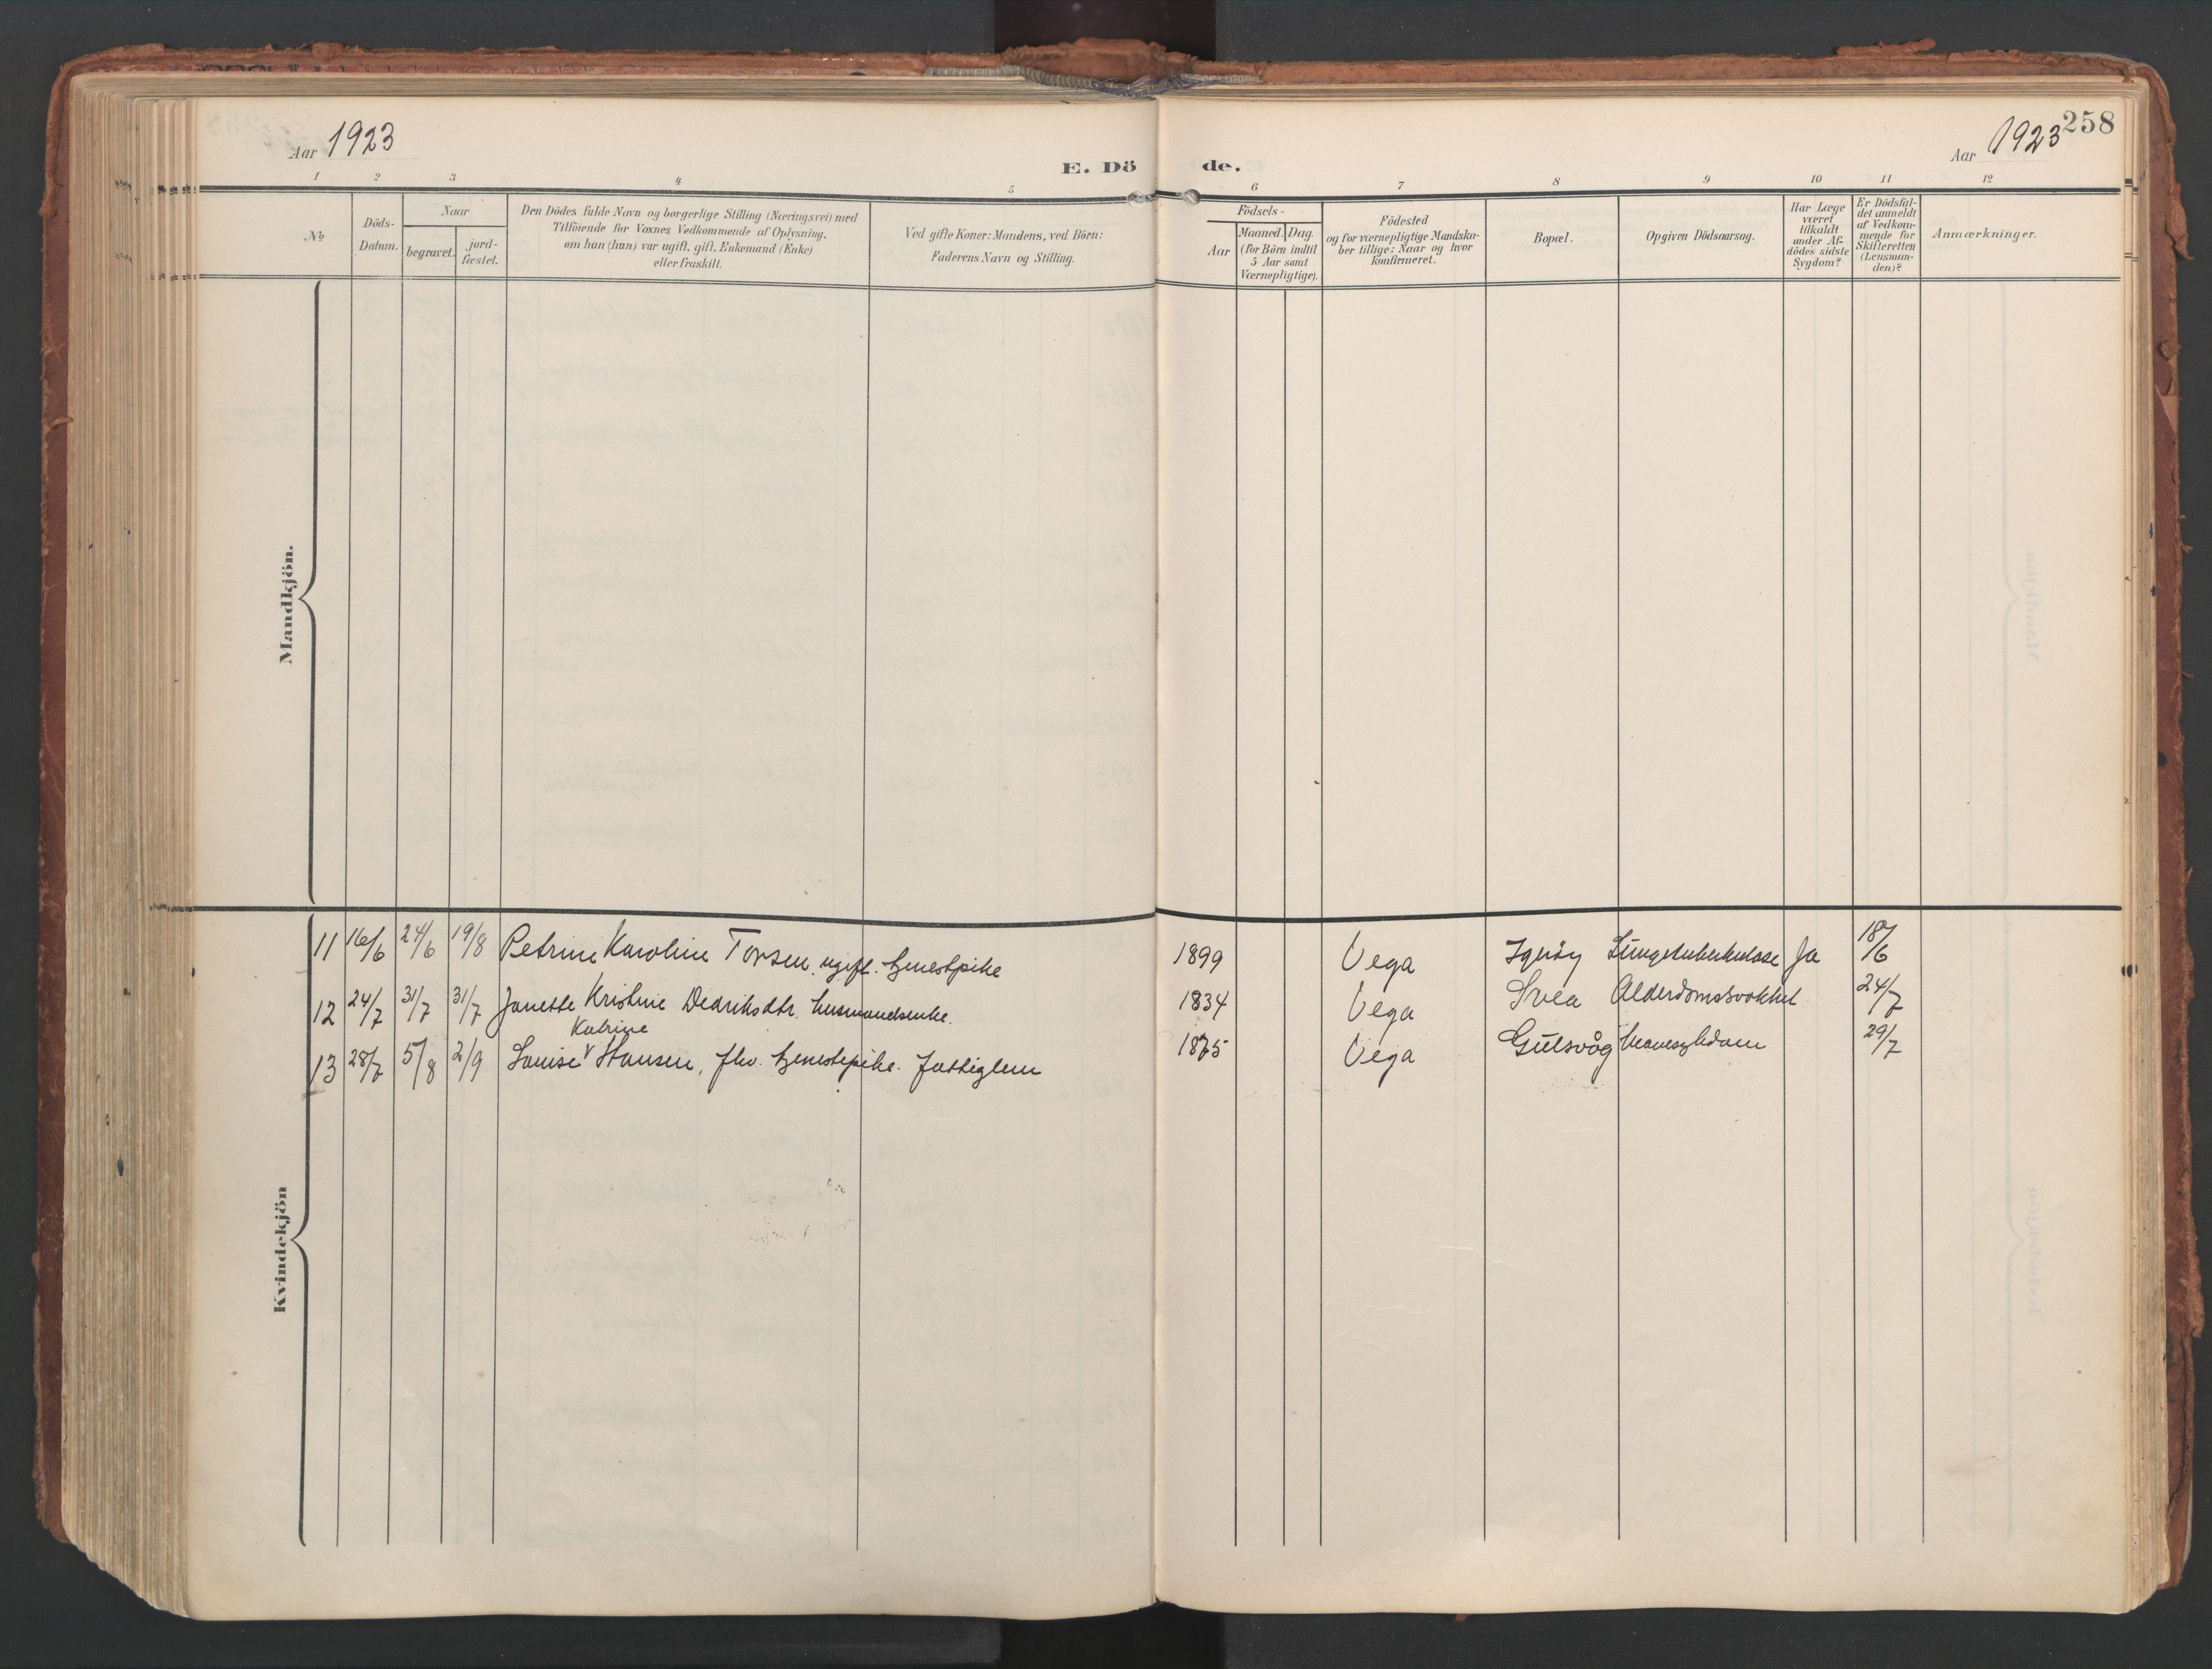 Aar 1923
E. Dö de.
Aar 1923
258
1 2 3 4 5 6 7 8 9 10 11 12
No
Döds-
Datum.
Naar
begravet.
jord-
fæstet.
Den Dödes fulde Navn og borgerlige Stilling (Næringsvei) med
Tilföiende for Voxnes Vedkommende af Oplysning,
om han (hun) var ugift, gift, Enkemand (Enke)
eller fraskilt.
Ved gifte Koner: Mandens, ved Börn:
Faderens Navn og Stilling.
Födsels-
Aar
Maaned. Dag.
(for Börn indtil
5 Aar samt
Værnepligtige).
Födested
og for værnepligtige Mandska-
ber tillige: Naar og hvor
konfirmeret.
Bopæl.
Opgiven Dödsaarsag.
Har Læge
været
tilkaldt
under Af-
dödes sidste
Sygdom?
Er Dödsfal-
det anmeldt
af Vedkom-
mende for
Skifteretten
(Lensman-
den)?
Anmærkninger.
Mandkjön.
11 16/6 24/6 19/8 Petrine Karoline Torsen, ugift. tjenestpike 1899 Vega Igeröy Lungetuberkulose Ja 18/6
12 24/7 31/7 31/7 Janette Kristine Dedriksdtr. husmandsenke. 1834 Vega Svea Alderdomssvakhet 24/7
Katrine
13 28/7 5/8 2/9 Louise Hansen, fhv. tjenestepike. Fattiglem 1875 Vega Gulsvåg 29/7
Kvindekjön